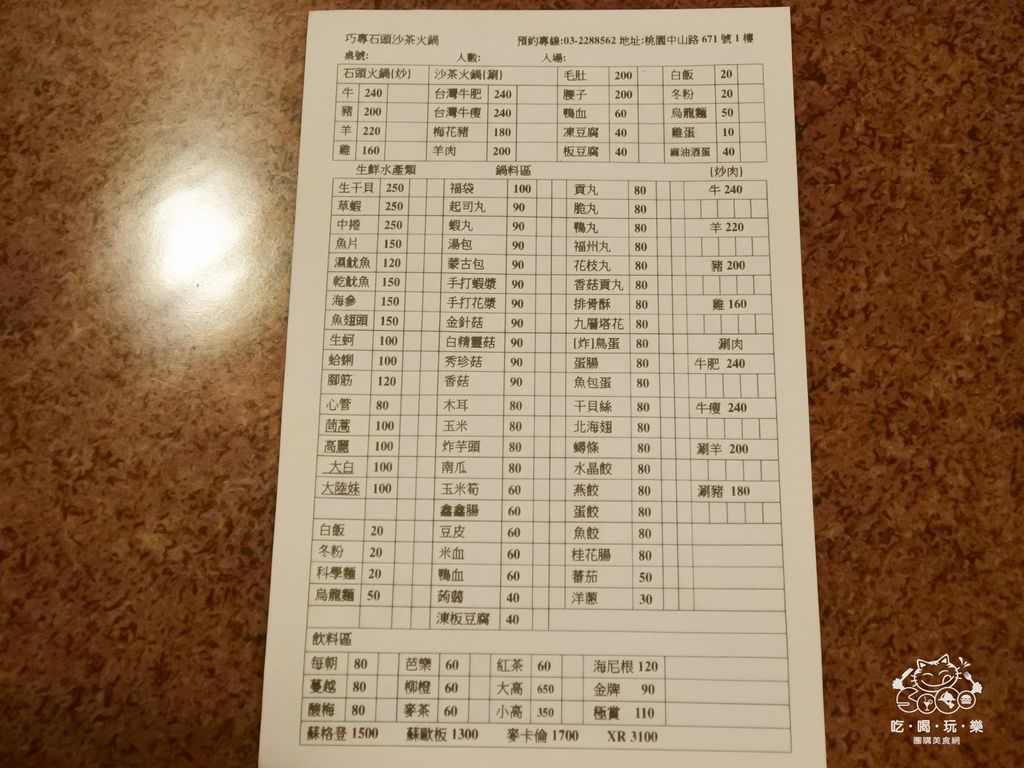 巧專石頭沙茶火鍋 預約專線:03-2288562 地址:桃園中山路 671 號 1 樓
桌號: 人數: 入場:
石頭火鍋(炒) 沙茶火鍋(涮) 毛肚 200 白飯 20
牛 240 台灣牛肥 240 腰子 200 冬粉 20
豬 200 台灣牛瘦 240 鴨血 60 烏龍麵 50
羊 220 梅花豬 180 凍豆腐 40 雞蛋 10
雞 160 羊肉 200 板豆腐 40 麻油酒蛋 40
生鮮水產類 鍋料區 (炒肉)
生干貝 250 福袋 100 貢丸 80 牛 240
草蝦 250 起司丸 90 脆丸 80
中捲 250 蝦丸 90 鴨丸 80 羊 220
魚片 150 湯包 90 福州丸 80
濕魷魚 120 蒙古包 90 花枝丸 80 豬 200
乾魷魚 150 手打蝦漿 90 香菇貢丸 80
海參 150 手打花漿 90 排骨酥 80 雞 160
魚翅頭 150 金針菇 90 九層塔花 80
生蚵 100 白精靈菇 90 [炸]鳥蛋 80 涮肉
蛤蜊 100 秀珍菇 90 蛋腸 80 牛肥 240
腳筋 120 香菇 90 魚包蛋 80
心管 80 木耳 80 干貝絲 80 牛瘦 240
茼蒿 100 玉米 80 北海翅 80
高麗 100 炸芋頭 80 鱈條 80 涮羊 200
大白 100 南瓜 80 水晶餃 80
大陸妹 100 玉米筍 60 燕餃 80 涮豬 180
鑫鑫腸 60 蛋餃 80
白飯 20 豆皮 60 魚餃 80
冬粉 20 米血 60 桂花腸 80
科學麵 20 鴨血 60 蕃茄 50
烏龍麵 50 蒟蒻 40 洋蔥 30
凍板豆腐 40
飲料區
每朝 80 芭樂 60 紅茶 60 海尼根 120
蔓越 80 柳橙 60 大高 650 金牌 90
酸梅 80 麥茶 60 小高 350 極賞 110
蘇格登 1500 蘇歐板 1300 麥卡倫 1700 XR 3100
吃·喝·玩·樂
團購美食網